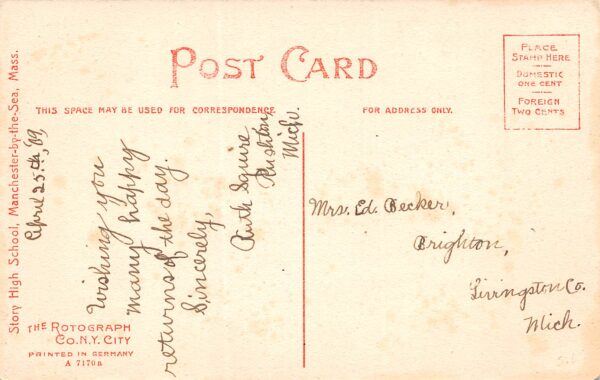 POST CARD
THIS SPACE MAY BE USED FOR CORRESPONDENCE.
FOR ADDRESS ONLY.
PLACE
STAMP HERE
DOMESTIC
ONE CENT
FOREIGN
TWO CENTS
Story High School, Manchester-by-the-Sea, Mass.
April 25th, '09,
Wishing you
many happy
returns of the day.
Sincerely,
Ruth Squire
Rushton,
Mich.
Mrs. Ed. Becker,
Brighton,
Livingston Co.
Mich.
THE ROTOGRAPH
CO. N.Y. CITY
PRINTED IN GERMANY
A 7170 B